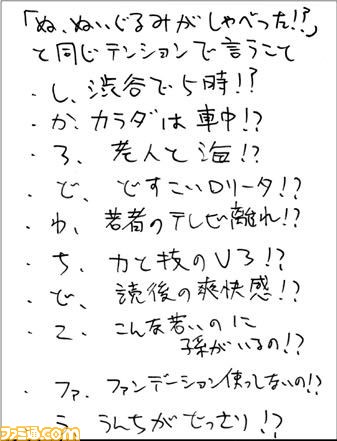 「ぬ、ぬいぐるみがしゃべった!?」
と同じテンションで言うこと
・し、渋谷で5時!?
・か、カラダは車中!?
・ろ、老人と海!?
・で、ですこいロリータ!?
・わ、若者のテレビ離れ!?
・ち、力と技のV3!?
・ど、読後の爽快感!?
・こ、こんな若いのに
孫がいるの!?
・ファ、ファンデーション使っしないの!?
・う、うんちがでっさり!?
ファミ通.com